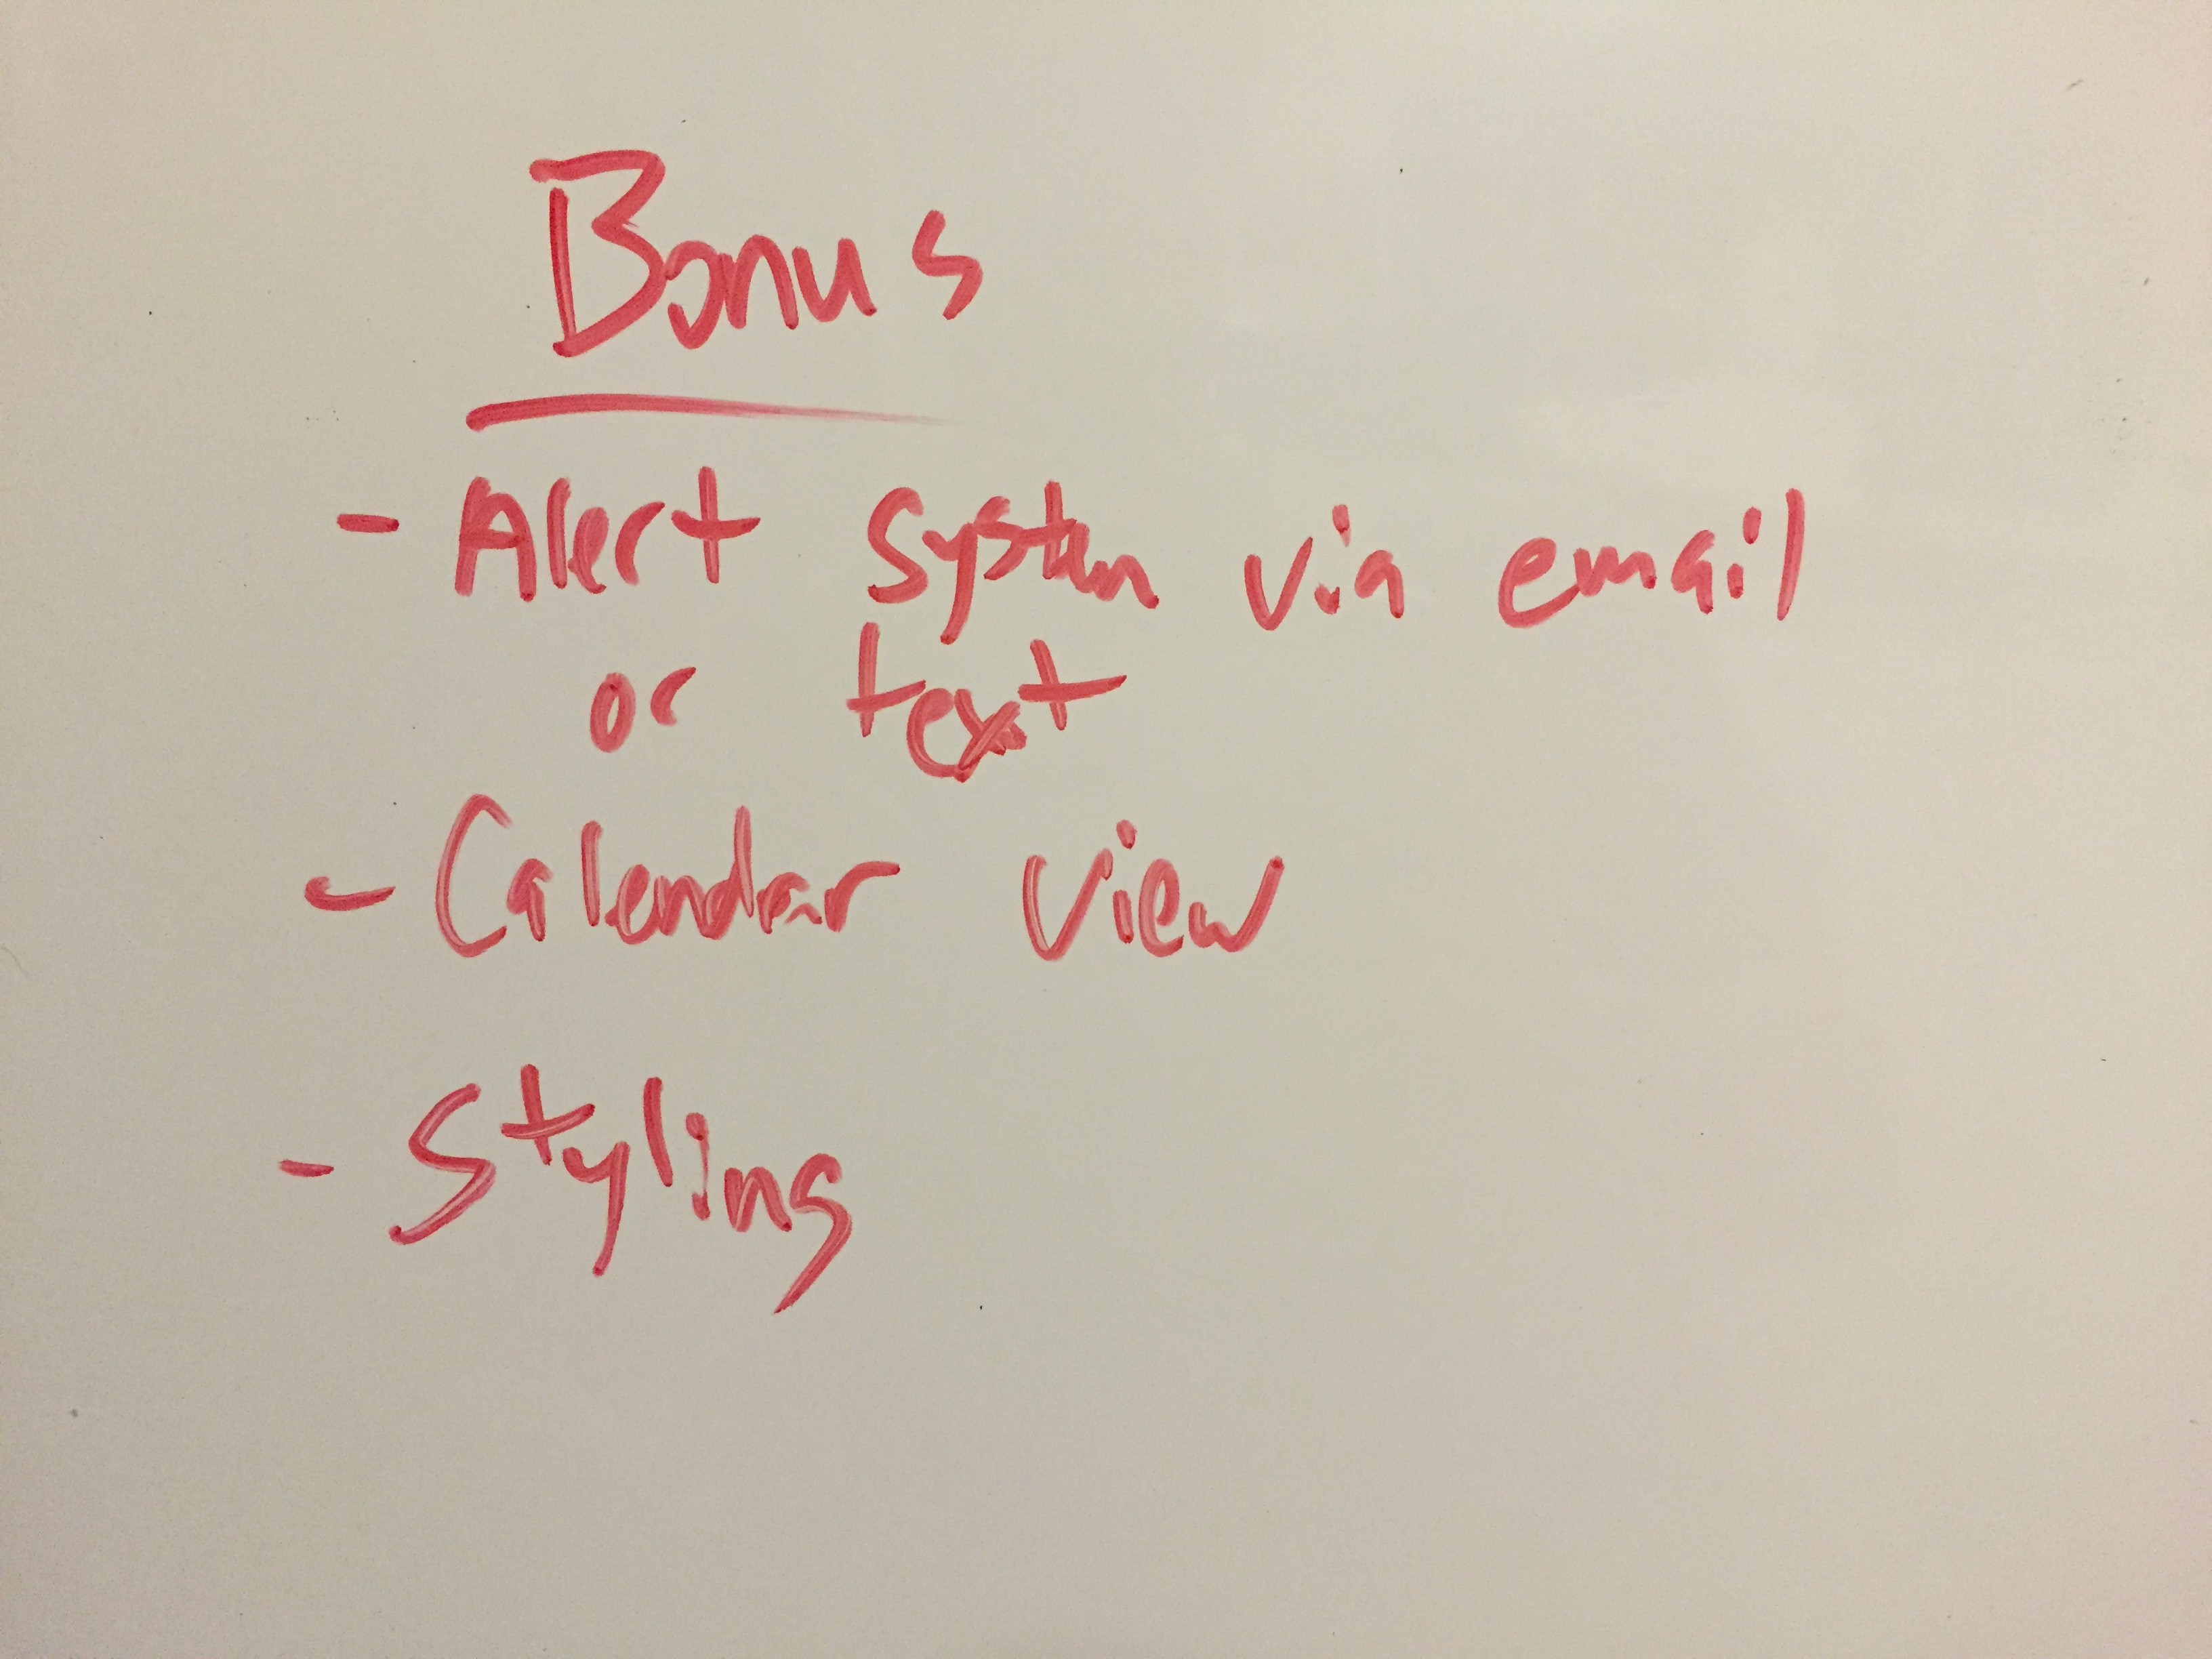 Bonus
- Alert system via email
or text
- Calendar view
- Styling